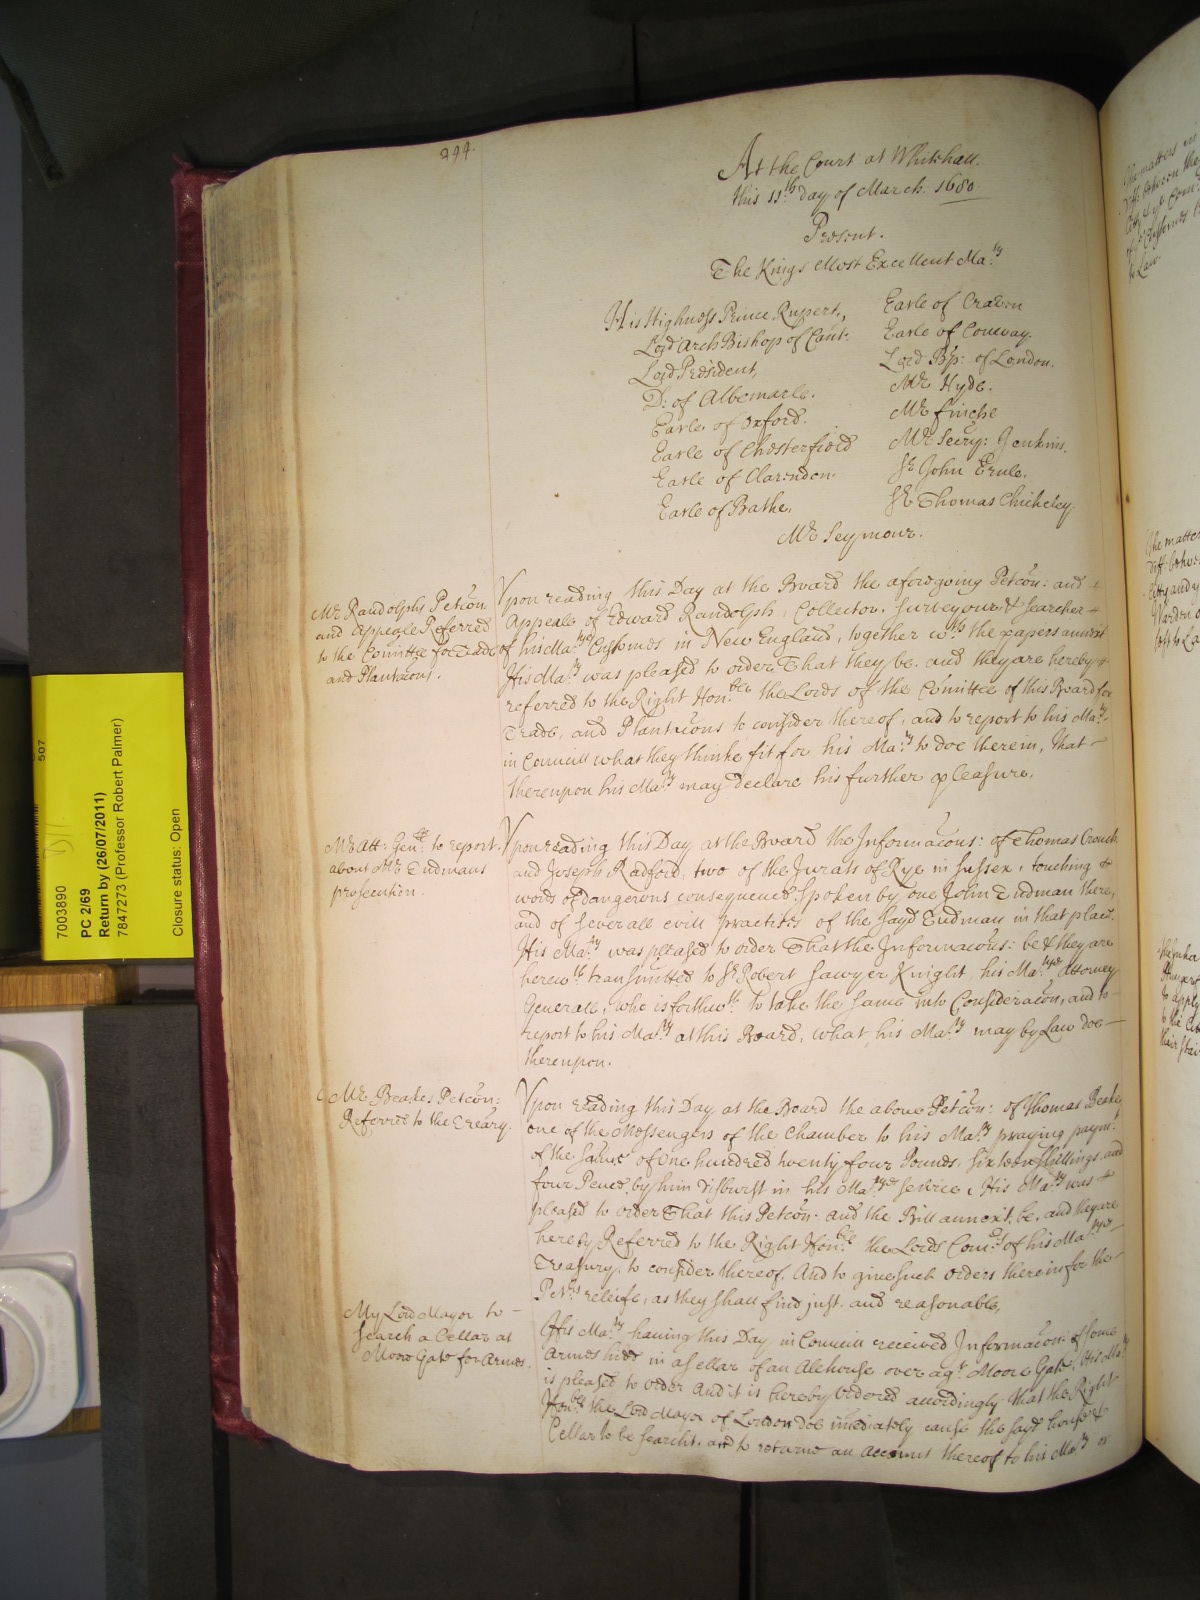 244.
At the Court at Whitehall.
this 11th day of March. 1680.
Present.
The Kings Most Excellent Ma.ty
His Highness Prince Rupert,
Lord ArchBishop of Cant:
Lord President,
D: of Albemarle.
Earle of Oxford.
Earle of Chesterfield
Earle of Clarendon
Earle of Bathe,
Earle of Craven
Earle of Conway.
Lord Bp: of London.
Mr Hyde.
Mr finche
Mr Secry: Jenkins.
Sr John Ernle.
Sr Thomas Chicheley
Mr Seymour.
Mr Randolphs Petcon.
and Appeale Referred
to the Comittee for Trade
and Plantacons.
Vpon reading this Day at the Board the aforegoing Petcon: and
Appeale of Edward Randolph, Collector, Surveyour & Searcher
of his Ma.tyes Customes in New England, together wth the papers annext
His Ma.ty was pleased to order That they be. and they are hereby
referred to the Right Hon.ble the Lords of the Comittee of this Board for
Trade, and Plantacons to consider thereof, and to report to his Ma.ty
in Councill what they thinke fit for his Ma.ty to doe therein, that
thereupon his Ma.ty may declare his further pleasure.
Mr Att: Gen.ll to report
about Mr Tudmans
prosecution.
Vpon reading this Day at the Board the Informacons: of Thomas Crouch
and Joseph Radford, two of the Jurats of Rye in Sussex, touching
words of dangerous consequence, Spoken by one John Tudman there,
and of severall evill practises of the sayd Tudman in that place.
His Ma.ty was pleased to order That the Informacons: be & they are
herewth transmitted to Sr Robert Sawyer Knight, his Ma.tyes Attorney
Generall, who is forthwth to take the same into Consideracon, and to
report to his Ma.ty at this Board, what his Ma.ty may by Law doe
thereupon.
Mr Beakes Petcon:
Referred to the Treary.
Vpon reading this Day at the Board the above Petcon: of Thomas Beake
one of the Messengers of the Chamber to his Ma.ty praying paym.t
of the summe of One hundred twenty four Pounds, sixteen shillings, and
four Pence, by him disburst in his Ma.tyes service, His Ma.ty was
pleased to order That this Petcon. and the Bill annext, be, and they are
hereby Referred to the Right Hon.ble the Lords Com.rs of his Ma.tyes
Treasury, to consider thereof, And to give such orders therein for the
Pet.rs releife, as they shall find just. and reasonable,
My Lord Mayor to
search a Cellar at
Moore Gate for Armes.
His Ma.ty having this Day in Councill received Informacon: of some
Armes hidd in a Cellar of an Alehouse over ag.t Moore Gate, His Ma.ty
is pleased to order And it is hereby Ordered accordingly that the Right
Hon.ble the Lord Mayor of London doe imediately cause the sayd house &
Cellar to be searcht. and to returne an Account thereof to his Ma.ty or
7003890
PC 2/69
Return by (26/07/2011)
7847273 (Professor Robert Palmer)
Closure status: Open
507